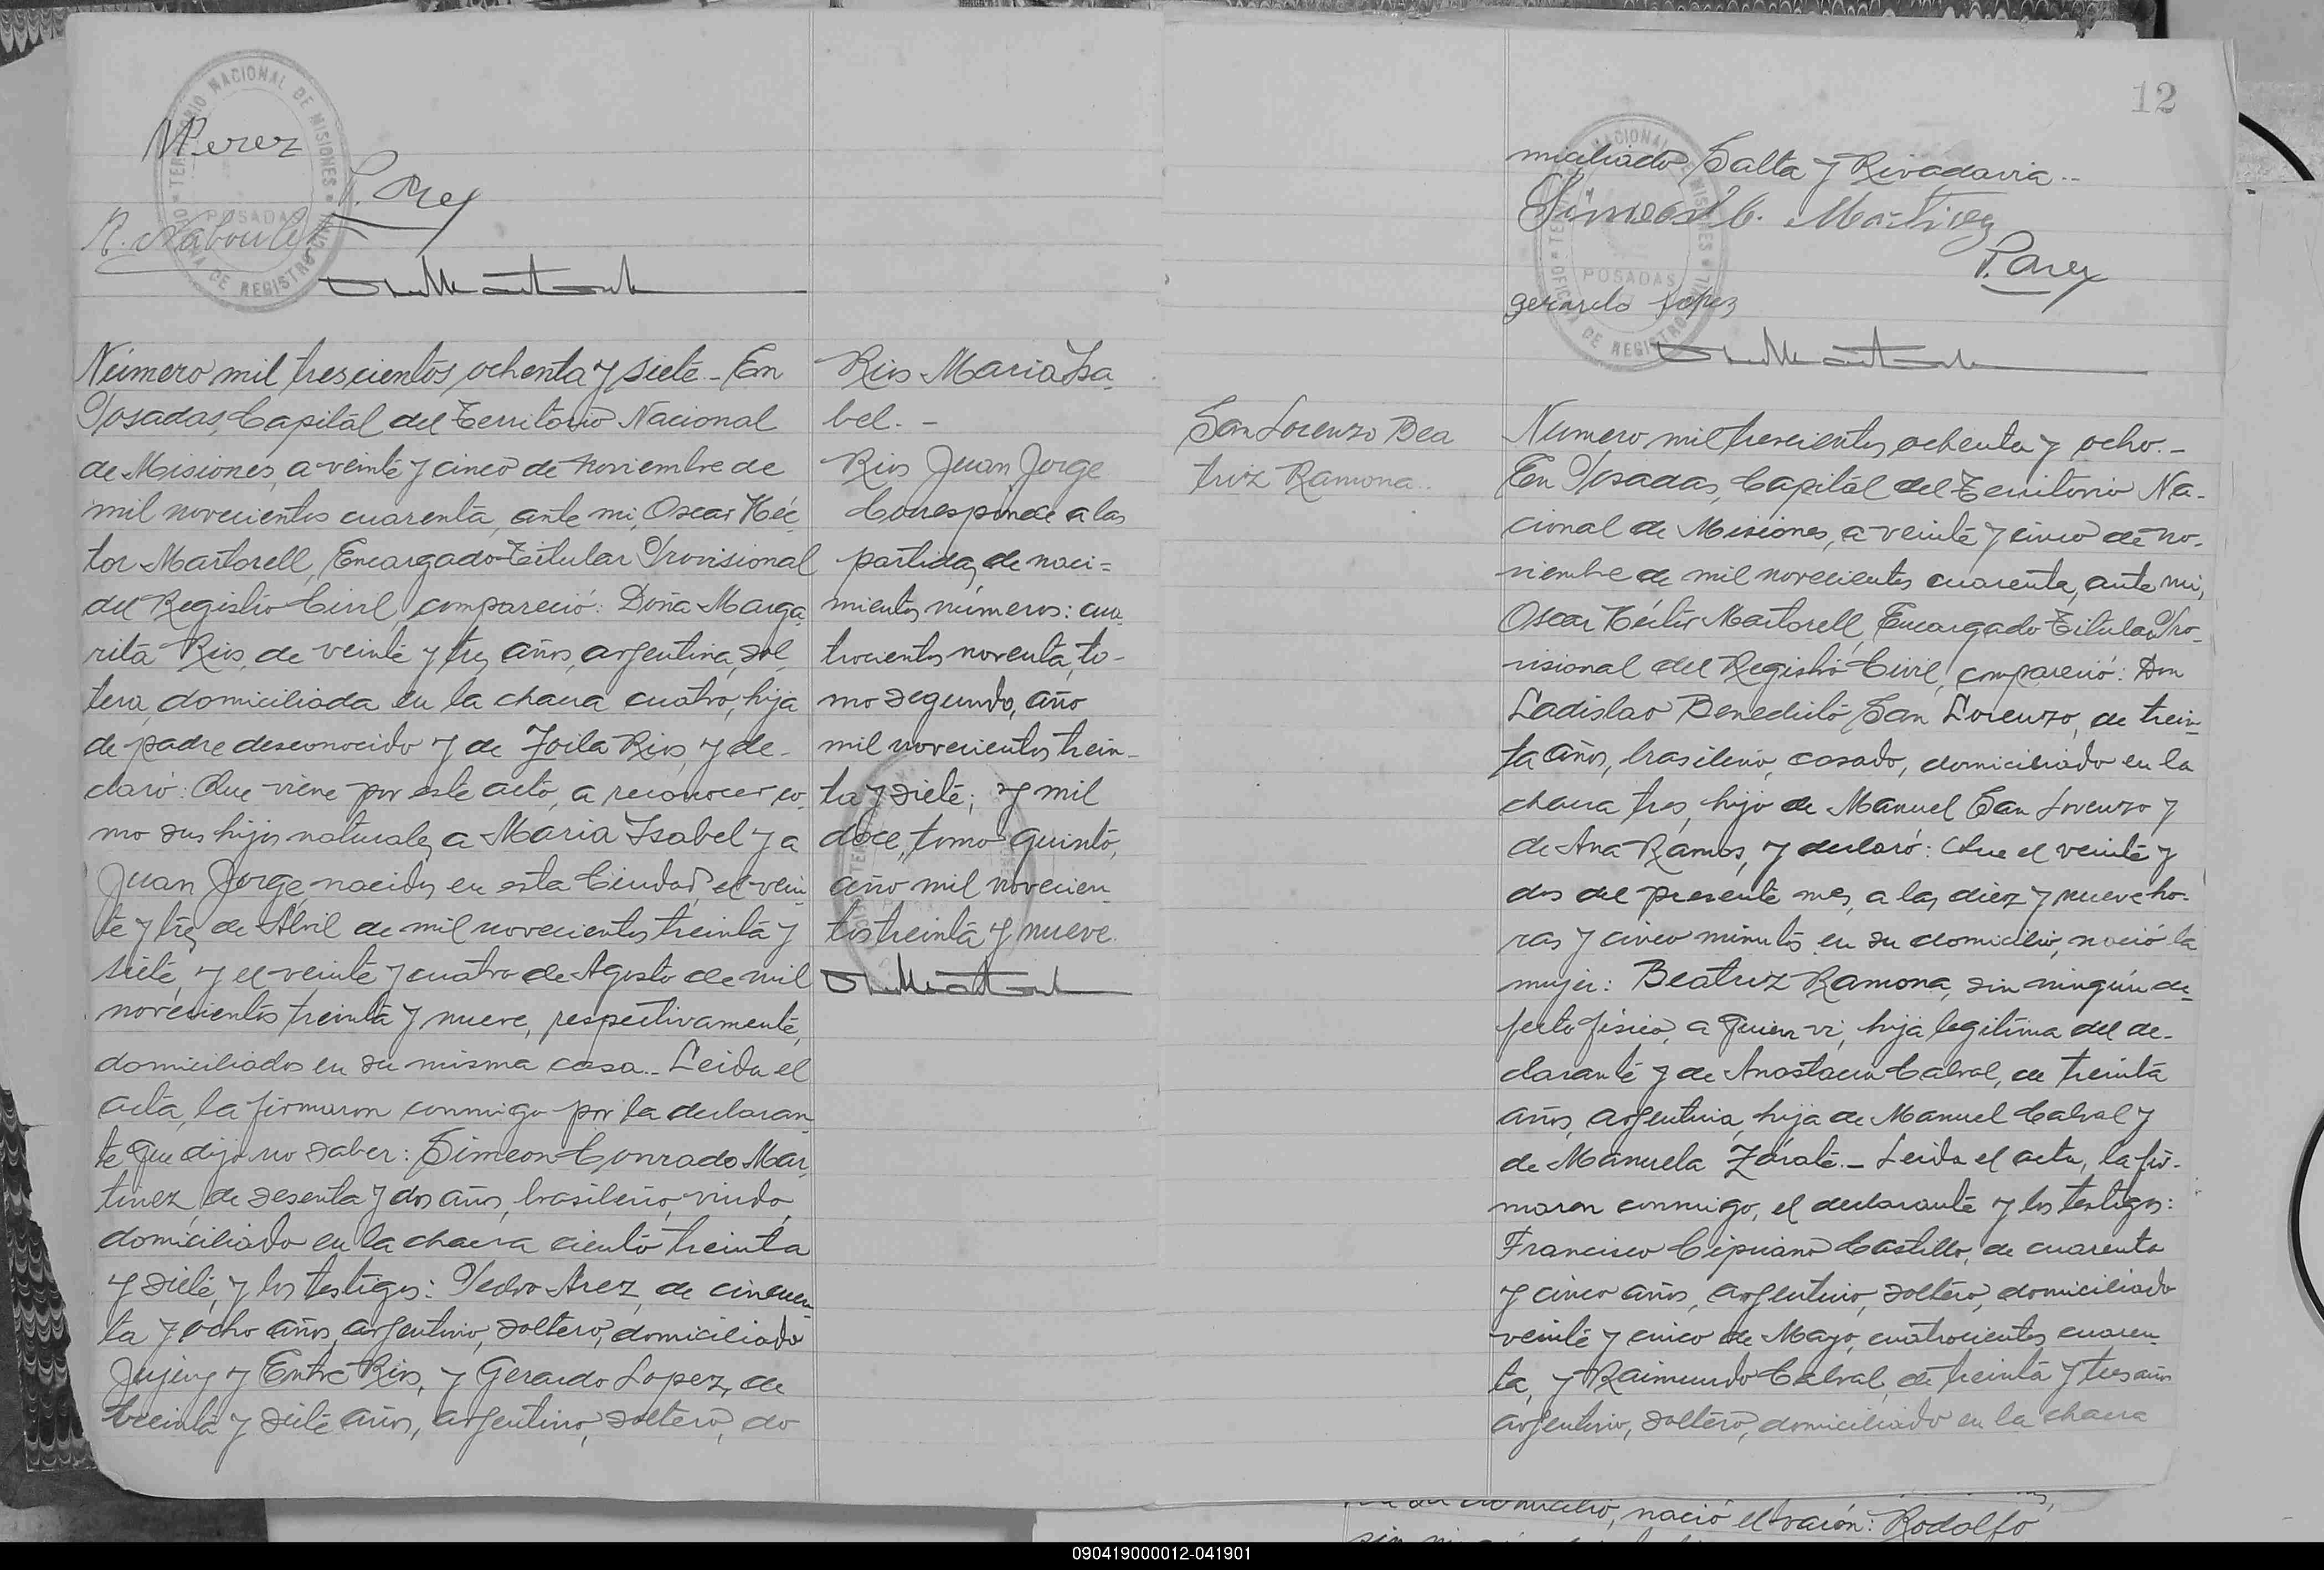 TERRITORIO NACIONAL DE MISIONES
POSADAS
OFICINA DE REGISTRO CIVIL
Perez
P. Arez
Número mil trescientos ochenta y siete.- En
Posadas, Capital del Territorio Nacional
de Misiones, a veinte y cinco de noviembre de
mil novecientos cuarenta, ante mi, Oscar Héc
tor Martorell, Encargado Titular Provisional
del Registro Civil, compareció: Doña Marga
rita Rios, de veinte y tres años, argentina, sol
tera, domiciliada en la chacra cuatro, hija
de padre desconocido y de Zoila Rios, y de-
claró: Que viene por este acto, a reconocer co-
mo sus hijos naturales a Maria Isabel y a
Juan Jorge, nacidos en esta Ciudad, el vein
te y tres de Abril de mil novecientos treinta y
siete, y el veinte y cuatro de Agosto de mil
novecientos treinta y nueve, respectivamente,
domiciliados en su misma casa.- Leida el
acta, la firmaron conmigo por la declaran
te que dijo no saber: Simeon Conrado Mar
tinez, de sesenta y dos años, brasileño, viudo,
domiciliado en la chacra ciento treinta
y siete, y los testigos: Pedro Arez, de cincuen
ta y ocho años, argentino, soltero, domiciliado
Jujuy y Entre Rios, y Gerardo Lopez, de
treinta y siete años, argentino, soltero, do
Rios Maria Isa
bel.-
Rios Juan Jorge
Corresponde a las
partidas de naci=
mientos números: cua
trocientos noventa, to-
mo segundo, año
mil novecientos trein-
ta y siete; y mil
doce, tomo quinto,
año mil novecien-
tos treinta y nueve.
12
miciliado Salta y Rivadavia..
Simeon C. Martinez
P. Arez
gerardo Lopez
TERRITORIO NACIONAL DE MISIONES
POSADAS
OFICINA DE REGISTRO CIVIL
San Lorenzo Bea
triz Ramona..
Número mil trescientos ochenta y ocho.-
En Posadas, Capital del Territorio Na-
cional de Misiones, a veinte y cinco de no-
viembre de mil novecientos cuarenta, ante mi,
Oscar Héctor Martorell, Encargado Titular Pro-
visional del Registro Civil, compareció: Don
Ladislao Benedicto San Lorenzo, de trein-
ta años, brasileño, casado, domiciliado en la
chacra tres, hijo de Manuel San Lorenzo y
de Ana Ramos, y declaró: Que el veinte y
dos del presente mes, a las diez y nueve ho-
ras y cinco minutos en su domicilio, nació la
mujer: Beatriz Ramona, sin ningún de-
fecto físico, a quien vi, hija legítima del de-
clarante y de Anastacia Cabral, de treinta
años, argentina, hija de Manuel Cabral y
de Manuela Zárate.- Leida el acta, la fir-
maron conmigo, el declarante y los testigos:
Francisco Cipriano Castillo, de cuarenta
y cinco años, argentino, soltero, domiciliado
veinte y cinco de Mayo, cuatrocientos cuaren-
ta, y Raimundo Cabral, de treinta y tres años
argentino, soltero, domiciliado en la chacra
domicilio, nació el varón: Rodolfo
090419000012-041901